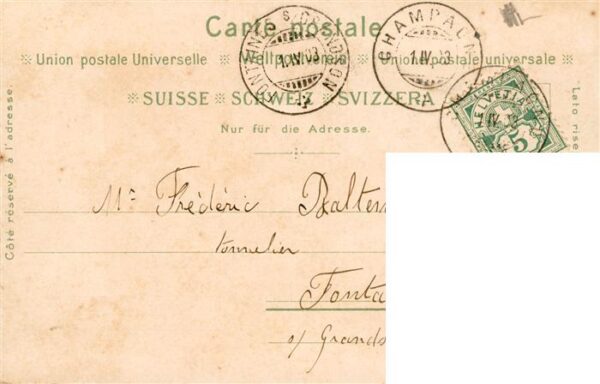 Carte postale
Union postale Universelle Weltpostverein Unione postale universale
SUISSE SCHWEIZ SVIZZERA
Nur für die Adresse.
Côté réservé à l'adresse.
Lato rise
FONTAINES S. GRANDSON
1.IV.03
CHAMPAGN
1.IV.03
HELVETIA
5
IV. 03
Mr Frédéric
tonnelier
Fonta
s/ Grands